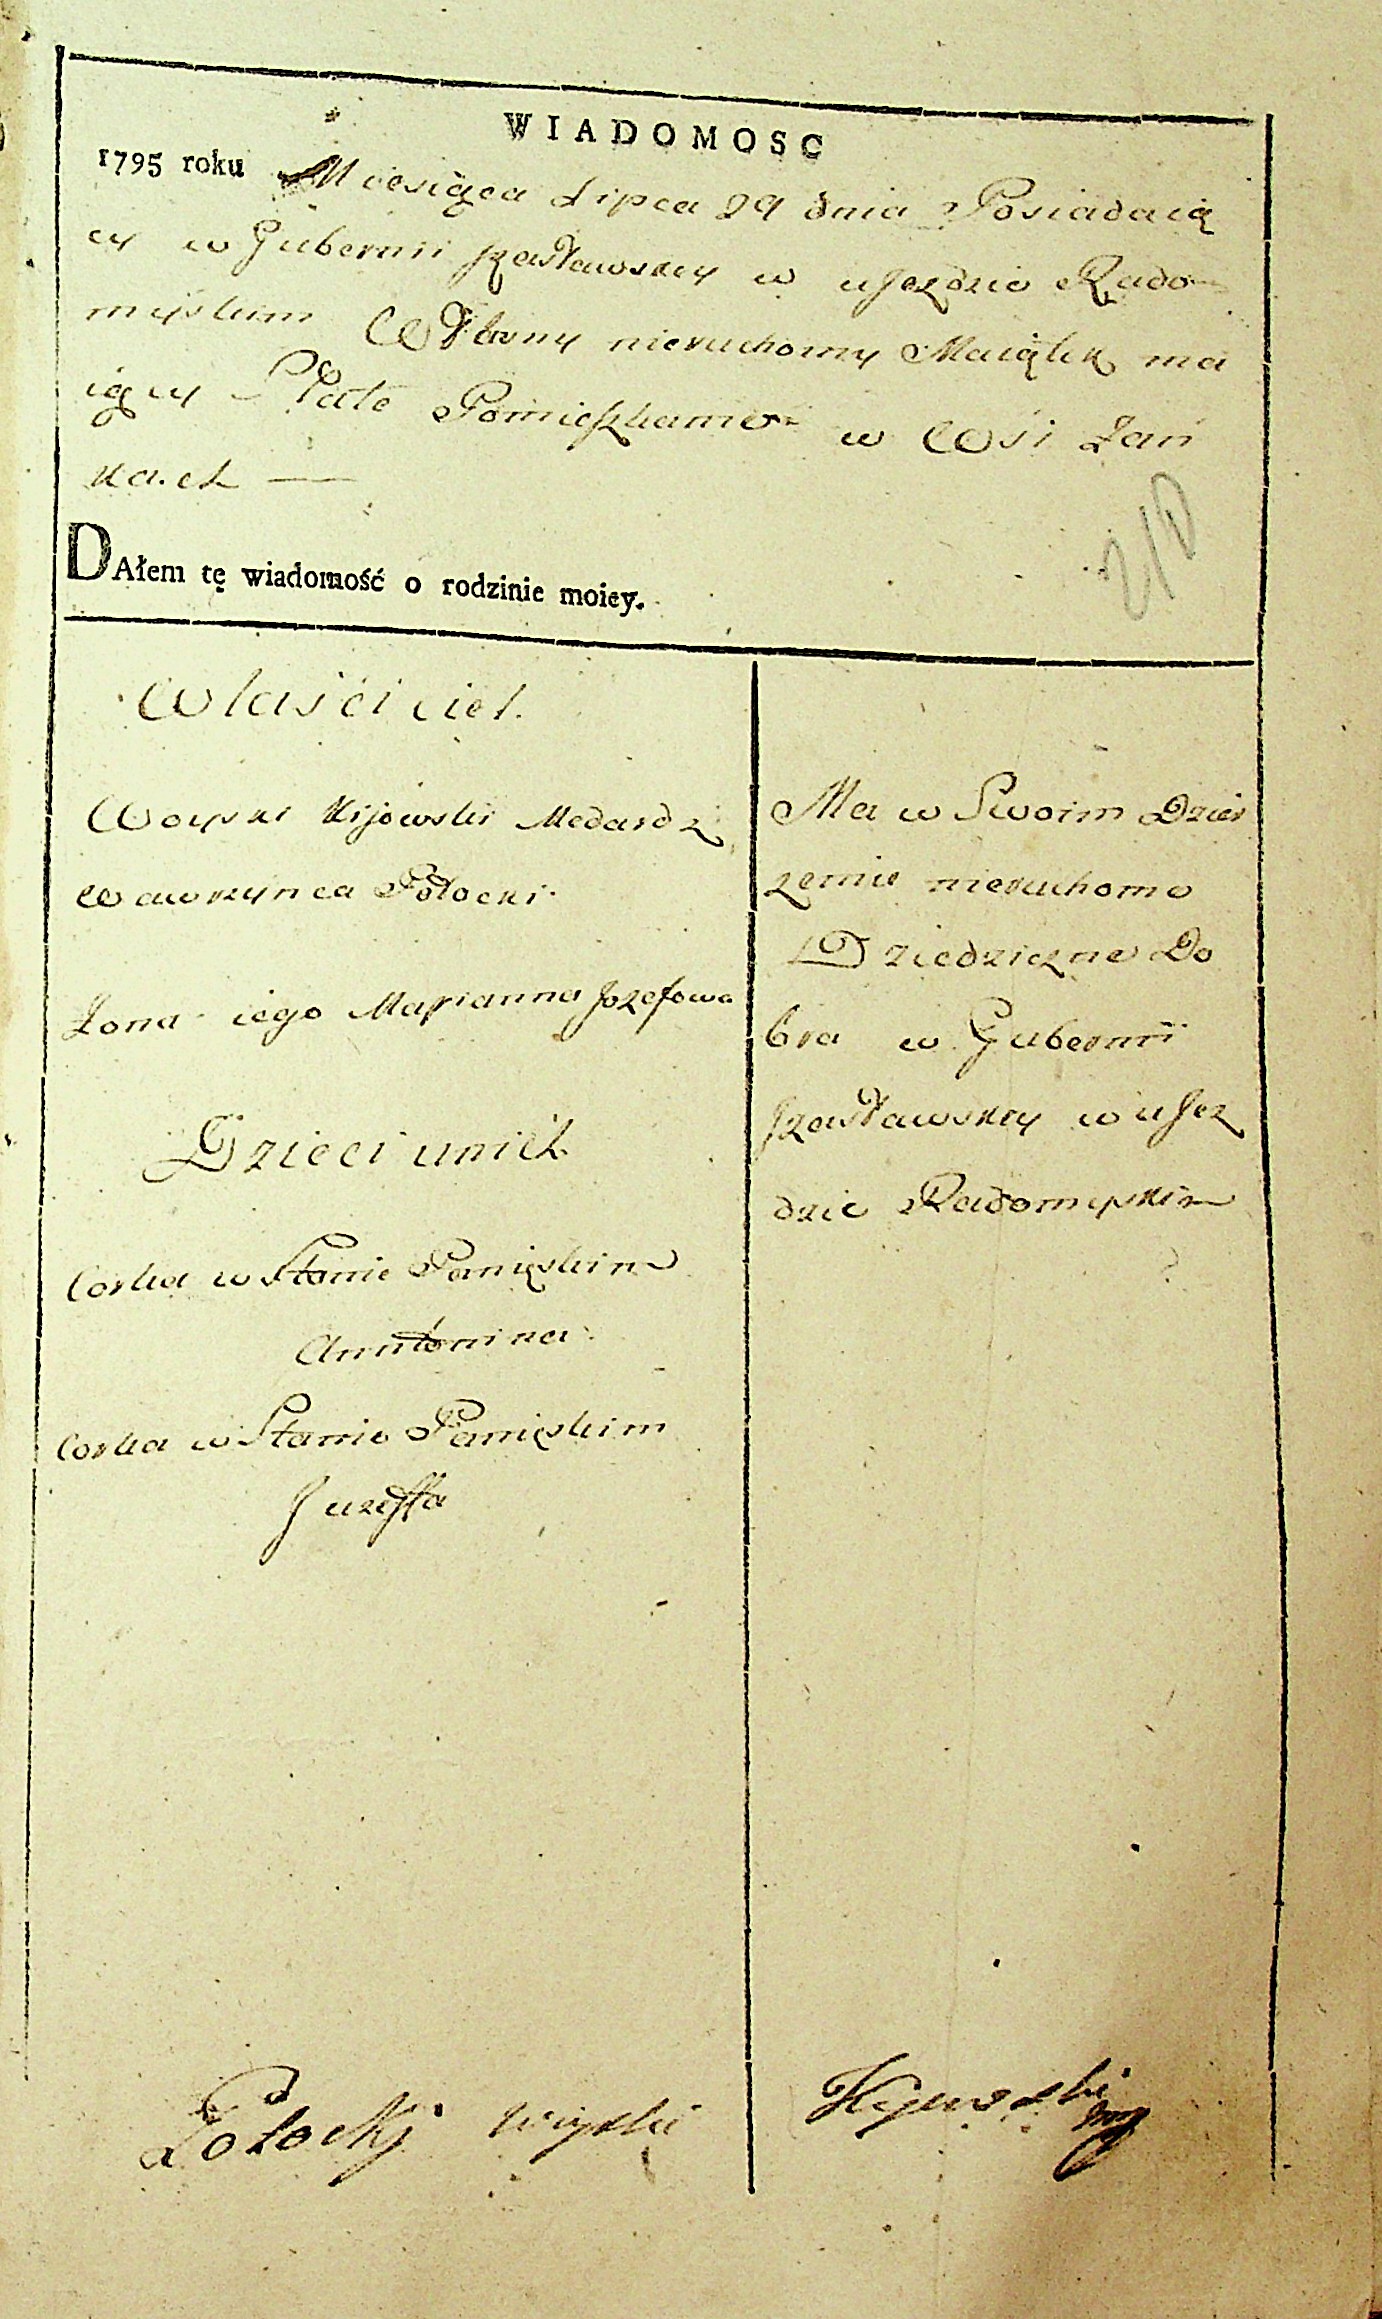 WIADOMOSC
1795 roku Miesiąca Lipca 29 dnia Posiadaią
cy w Gubernii Jzasławskey w ujezdzie Rado
myslkim Własny nieruchomy Maiątek ma
iący Stałe Pomieszkanie w Wsi Łań
kach —
210
DAłem tę wiadomość o rodzinie moiey.
Właściciel.
Woyski Kijowski Medard z
Wawrzynca Potocki
Żona iego Marianna Jozefowa
Dzieci unich
Corka w Stanie Panięskim
Anntónina
Corka w Stanie Panięskim
Juzeffa
Ma w Swoim Dzier
zeniu nieruchome
Dziedziczne Do
bra w Gubernii
Jzasławskey w ujez
dzie Radomyskim
Potocki Woyski Kijowski
mp